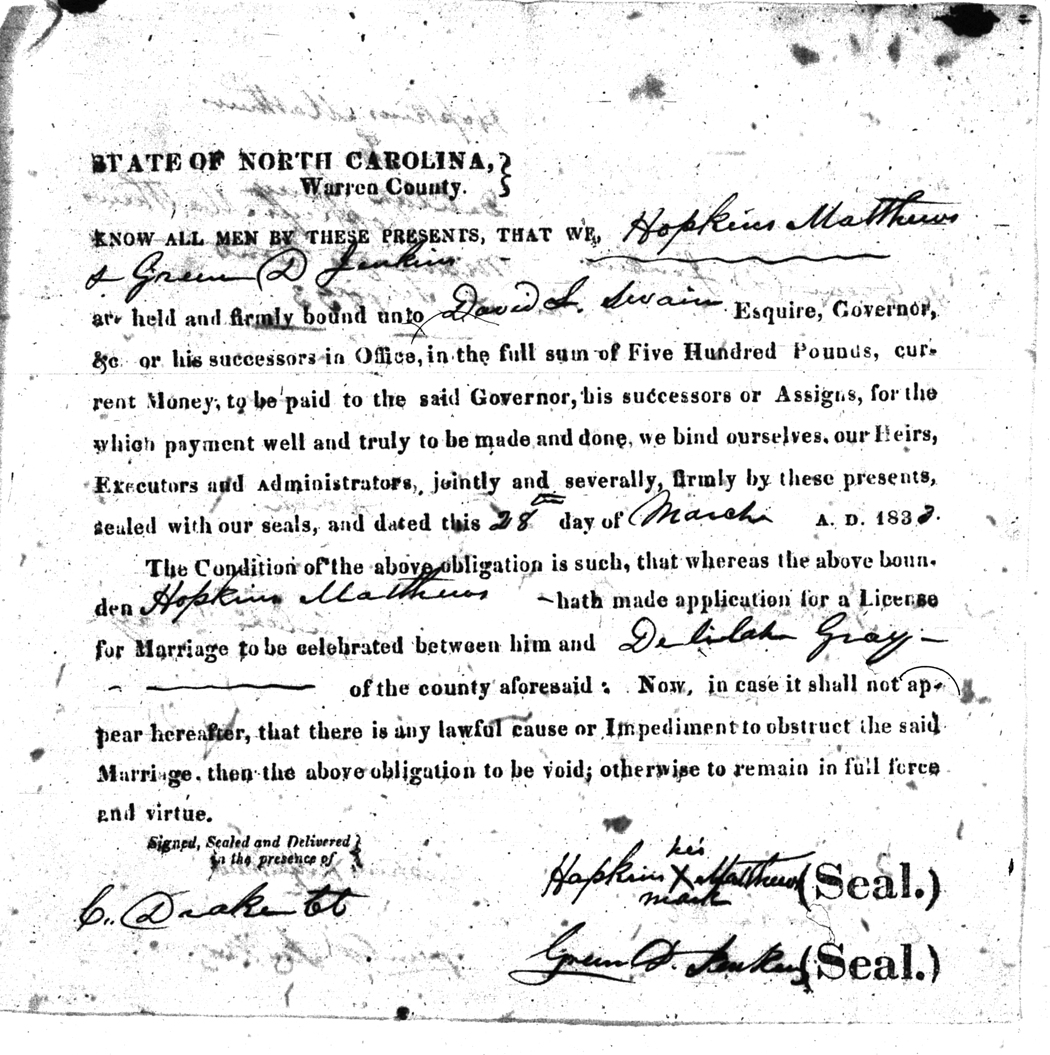 STATE OF NORTH CAROLINA,
Warren County.
KNOW ALL MEN BY THESE PRESENTS, THAT WE, Hopkins Matthews
& Green D Jenkins
are held and firmly bound unto David L. Swain Esquire, Governor,
&c or his successors in Office, in the full sum of Five Hundred Pounds, cur-
rent Money, to be paid to the said Governor, his successors or Assigns, for the
which payment well and truly to be made and done, we bind ourselves, our Heirs,
Executors and Administrators, jointly and severally, firmly by these presents,
sealed with our seals, and dated this 28th day of March A. D. 1833.
The Condition of the above obligation is such, that whereas the above boun-
den Hopkins Matthews hath made application for a License
for Marriage to be celebrated between him and Delilah Gray
of the county aforesaid: Now, in case it shall not ap-
pear hereafter, that there is any lawful cause or Impediment to obstruct the said
Marriage, then the above obligation to be void; otherwise to remain in full force
and virtue.
Signed, Sealed and Delivered
in the presence of
his
Hopkins X Matthews (Seal.)
mark
C. Drake
Green D. Jenkins (Seal.)